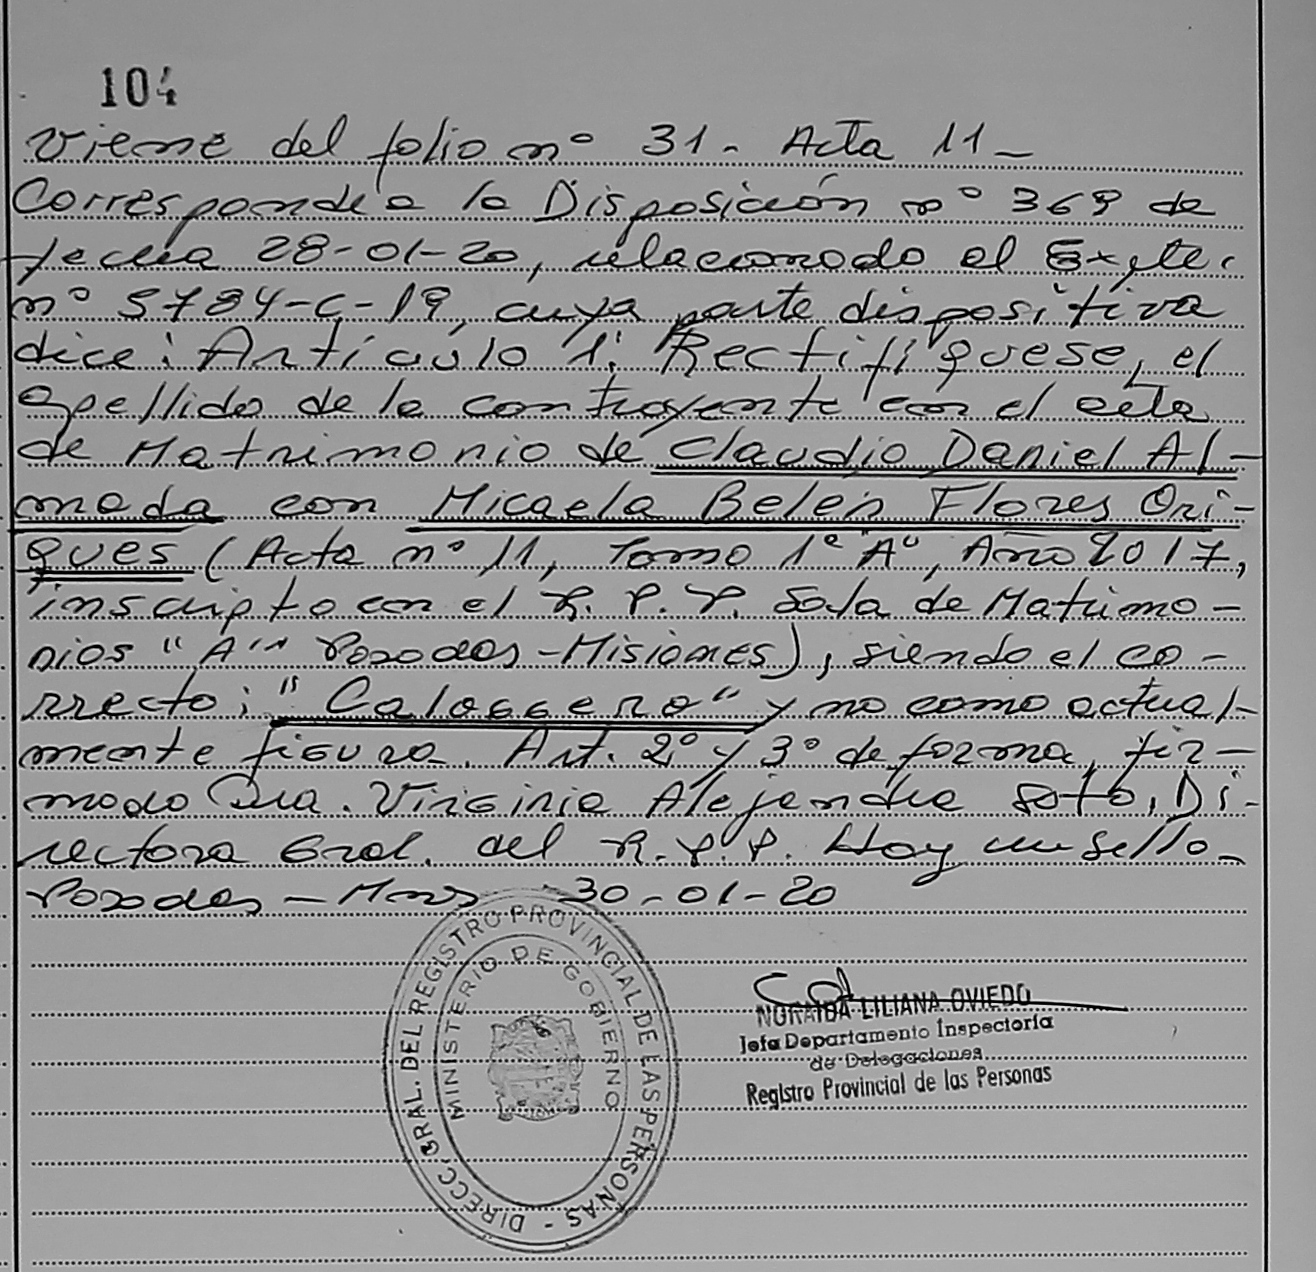 104
Viene del folio nº 31- Acta 11-
Corresponde a la Disposición nº 369 de
fecha 28-01-20, relacionado al Expte.
nº 5784-C-19, cuya parte dispositiva
dice: Artículo 1: Rectifíquese, el
apellido de la contrayente en el acta
de Matrimonio de Claudio Daniel Al-
mada con Micaela Belén Flores Ori-
ques (Acta nº 11, Tomo 1º "A", Año 2017,
inscripto en el R. P. P. Sala de Matrimo-
nios "A" Posadas-Misiones), siendo el co-
rrecto: "Caloggero" y no como actual-
mente figura. Art. 2º y 3º de forma, fir-
mado Dra. Virginia Alejandra Soto, Di-
rectora Gral. del R.P.P. Hay un sello-
Posadas - Mnes 30-01-20
DIRECC. GRAL. DEL REGISTRO PROVINCIAL DE LAS PERSONAS -
MINISTERIO DE GOBIERNO
NORAIDA LILIANA OVIEDO
Jefa Departamento Inspectoría
de Delegaciones
Registro Provincial de las Personas